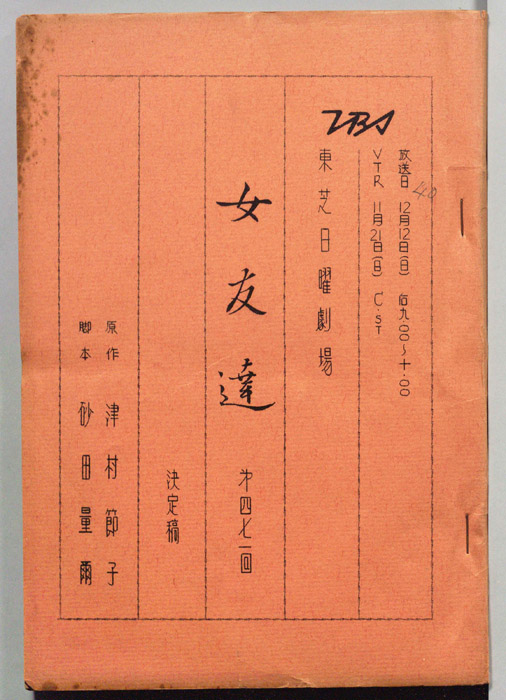 放送日 12月12日(日) 后九.00〜十.00
40
VTR 11月21日(日) C.ST
TBS
東芝日曜劇場
女友達
第四七一回
決定稿
原作 津村節子
脚本 砂田量爾